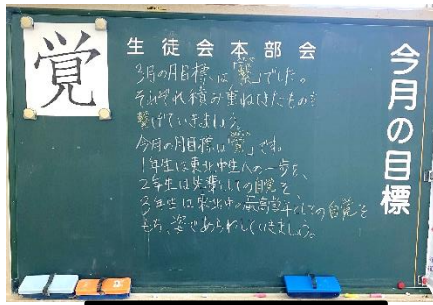 今月の目標
覚
生徒会本部会
3月の月目標は「繋」でした。
それぞれ積み重ねてきたものを
繋げていきましょう。
今月の月目標は「覚」です。
1年生は東北中生への一歩を、
2年生は先輩としての自覚を、
3年生は東北中の最高学年としての自覚を
もち、姿であらわしていきましょう。